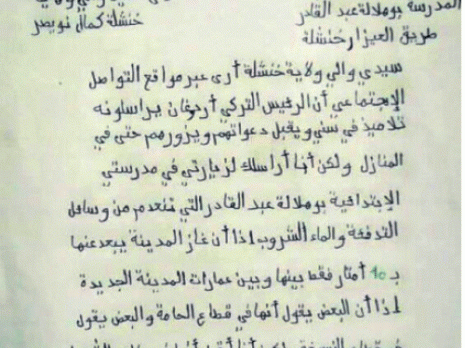 المدرسة بوهلالة عبد القادر
خنشلة كمال نويصر
طريق العيزار خنشلة
سيدي والي ولاية خنشلة أرى عبر مواقع التواصل
الإجتماعي أن الرئيس التركي أردغان يراسلونه
تلاميذ في سني ويقبل دعواتهم ويزورهم حتى في
المنازل ولكن أنا أراسلك لزيارتي في مدرستي
الإبتدائية بوهلالة عبد القادر التي تنعدم من وسائل
التدفئة والماء الشروب اذا أن غاز المدينة يبعد عنها
بـ 10 أمتار فقط بينها وبين عمارات المدينة الجديدة
اذا أن البعض يقول أنها في قطاع الحامة والبعض يقول